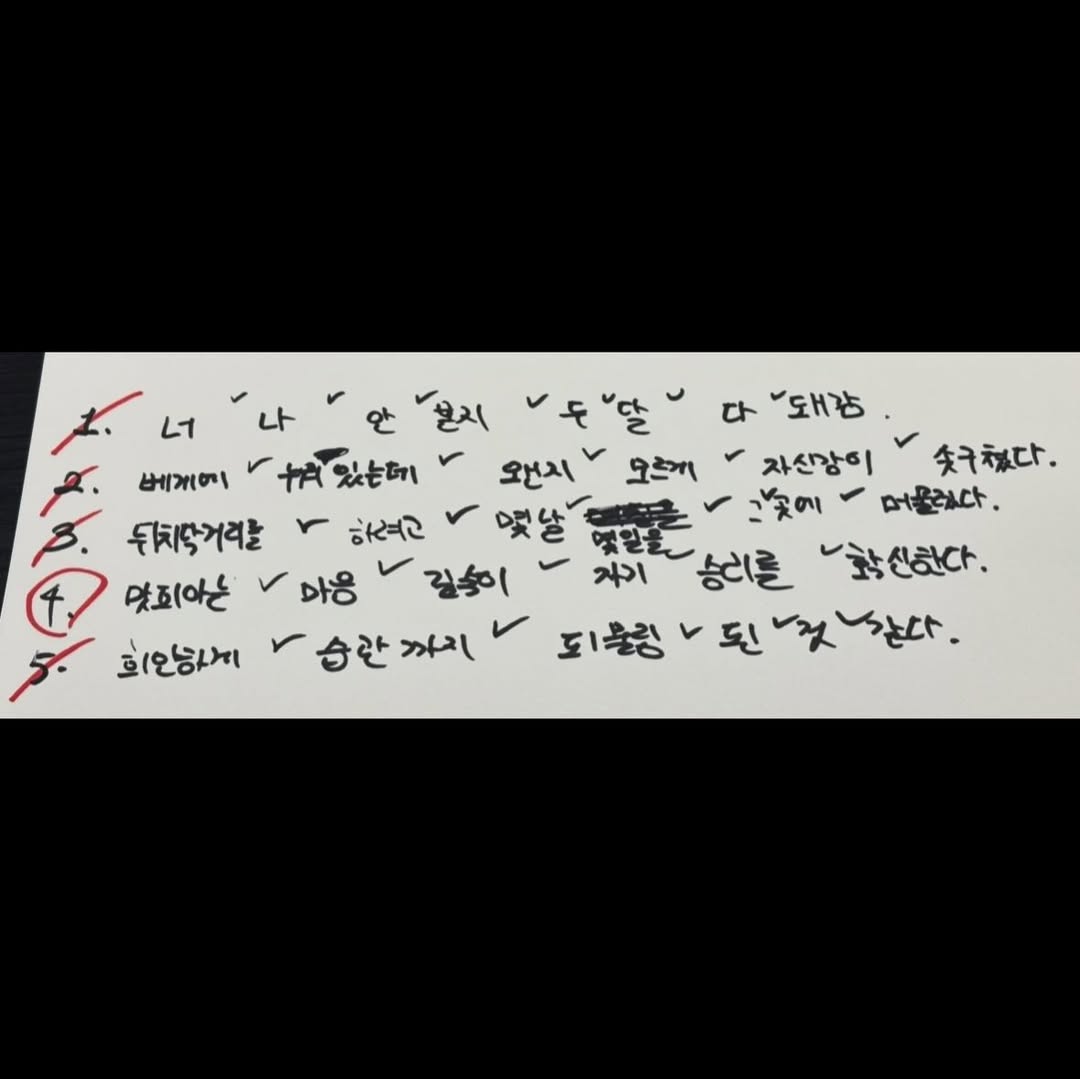 1. 너 나 안 본지 두 달 다 돼감.
2. 베게에 누워 있는데 왠지 모르게 자신감이 솟구쳤다.
3. 뒤치닥거리를 하려고 몇날 몇일을 그곳에 머물렀다.
4. 맞피아는 마음 깊숙이 자기 승리를 확신한다.
5. 희안하게 습관까지 되물림 된 것 같다.